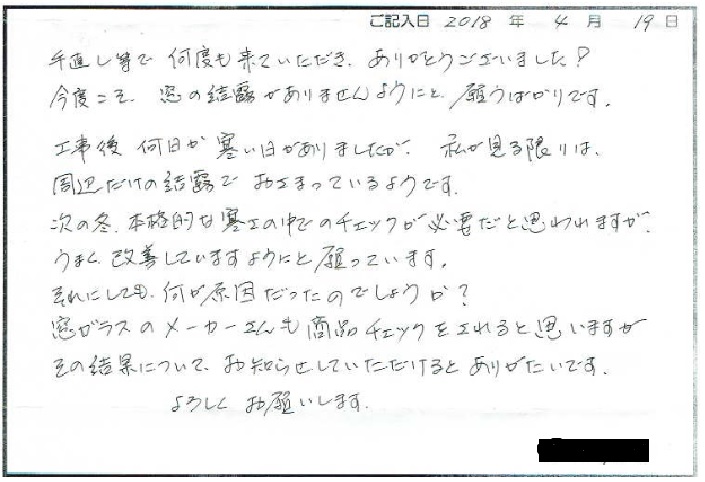 ご記入日 2018 年 4 月 19 日
手直し等で 何度も来ていただき、ありがとうございました!
今度こそ、窓の結露がありませんようにと、願うばかりです。
工事後 何日か 寒い日がありましたが、私が見る限りは、
周辺だけの結露で おさまっているようです。
次の冬、本格的な寒さの中でのチェックが必要だと思われますが、
うまく改善していますようにと 願っています。
それにしても、何が原因だったのでしょうか?
窓ガラスのメーカーさんも 商品チェックをされると思いますが
その結果について、お知らせしていただけると ありがたいです。
よろしく お願いします。